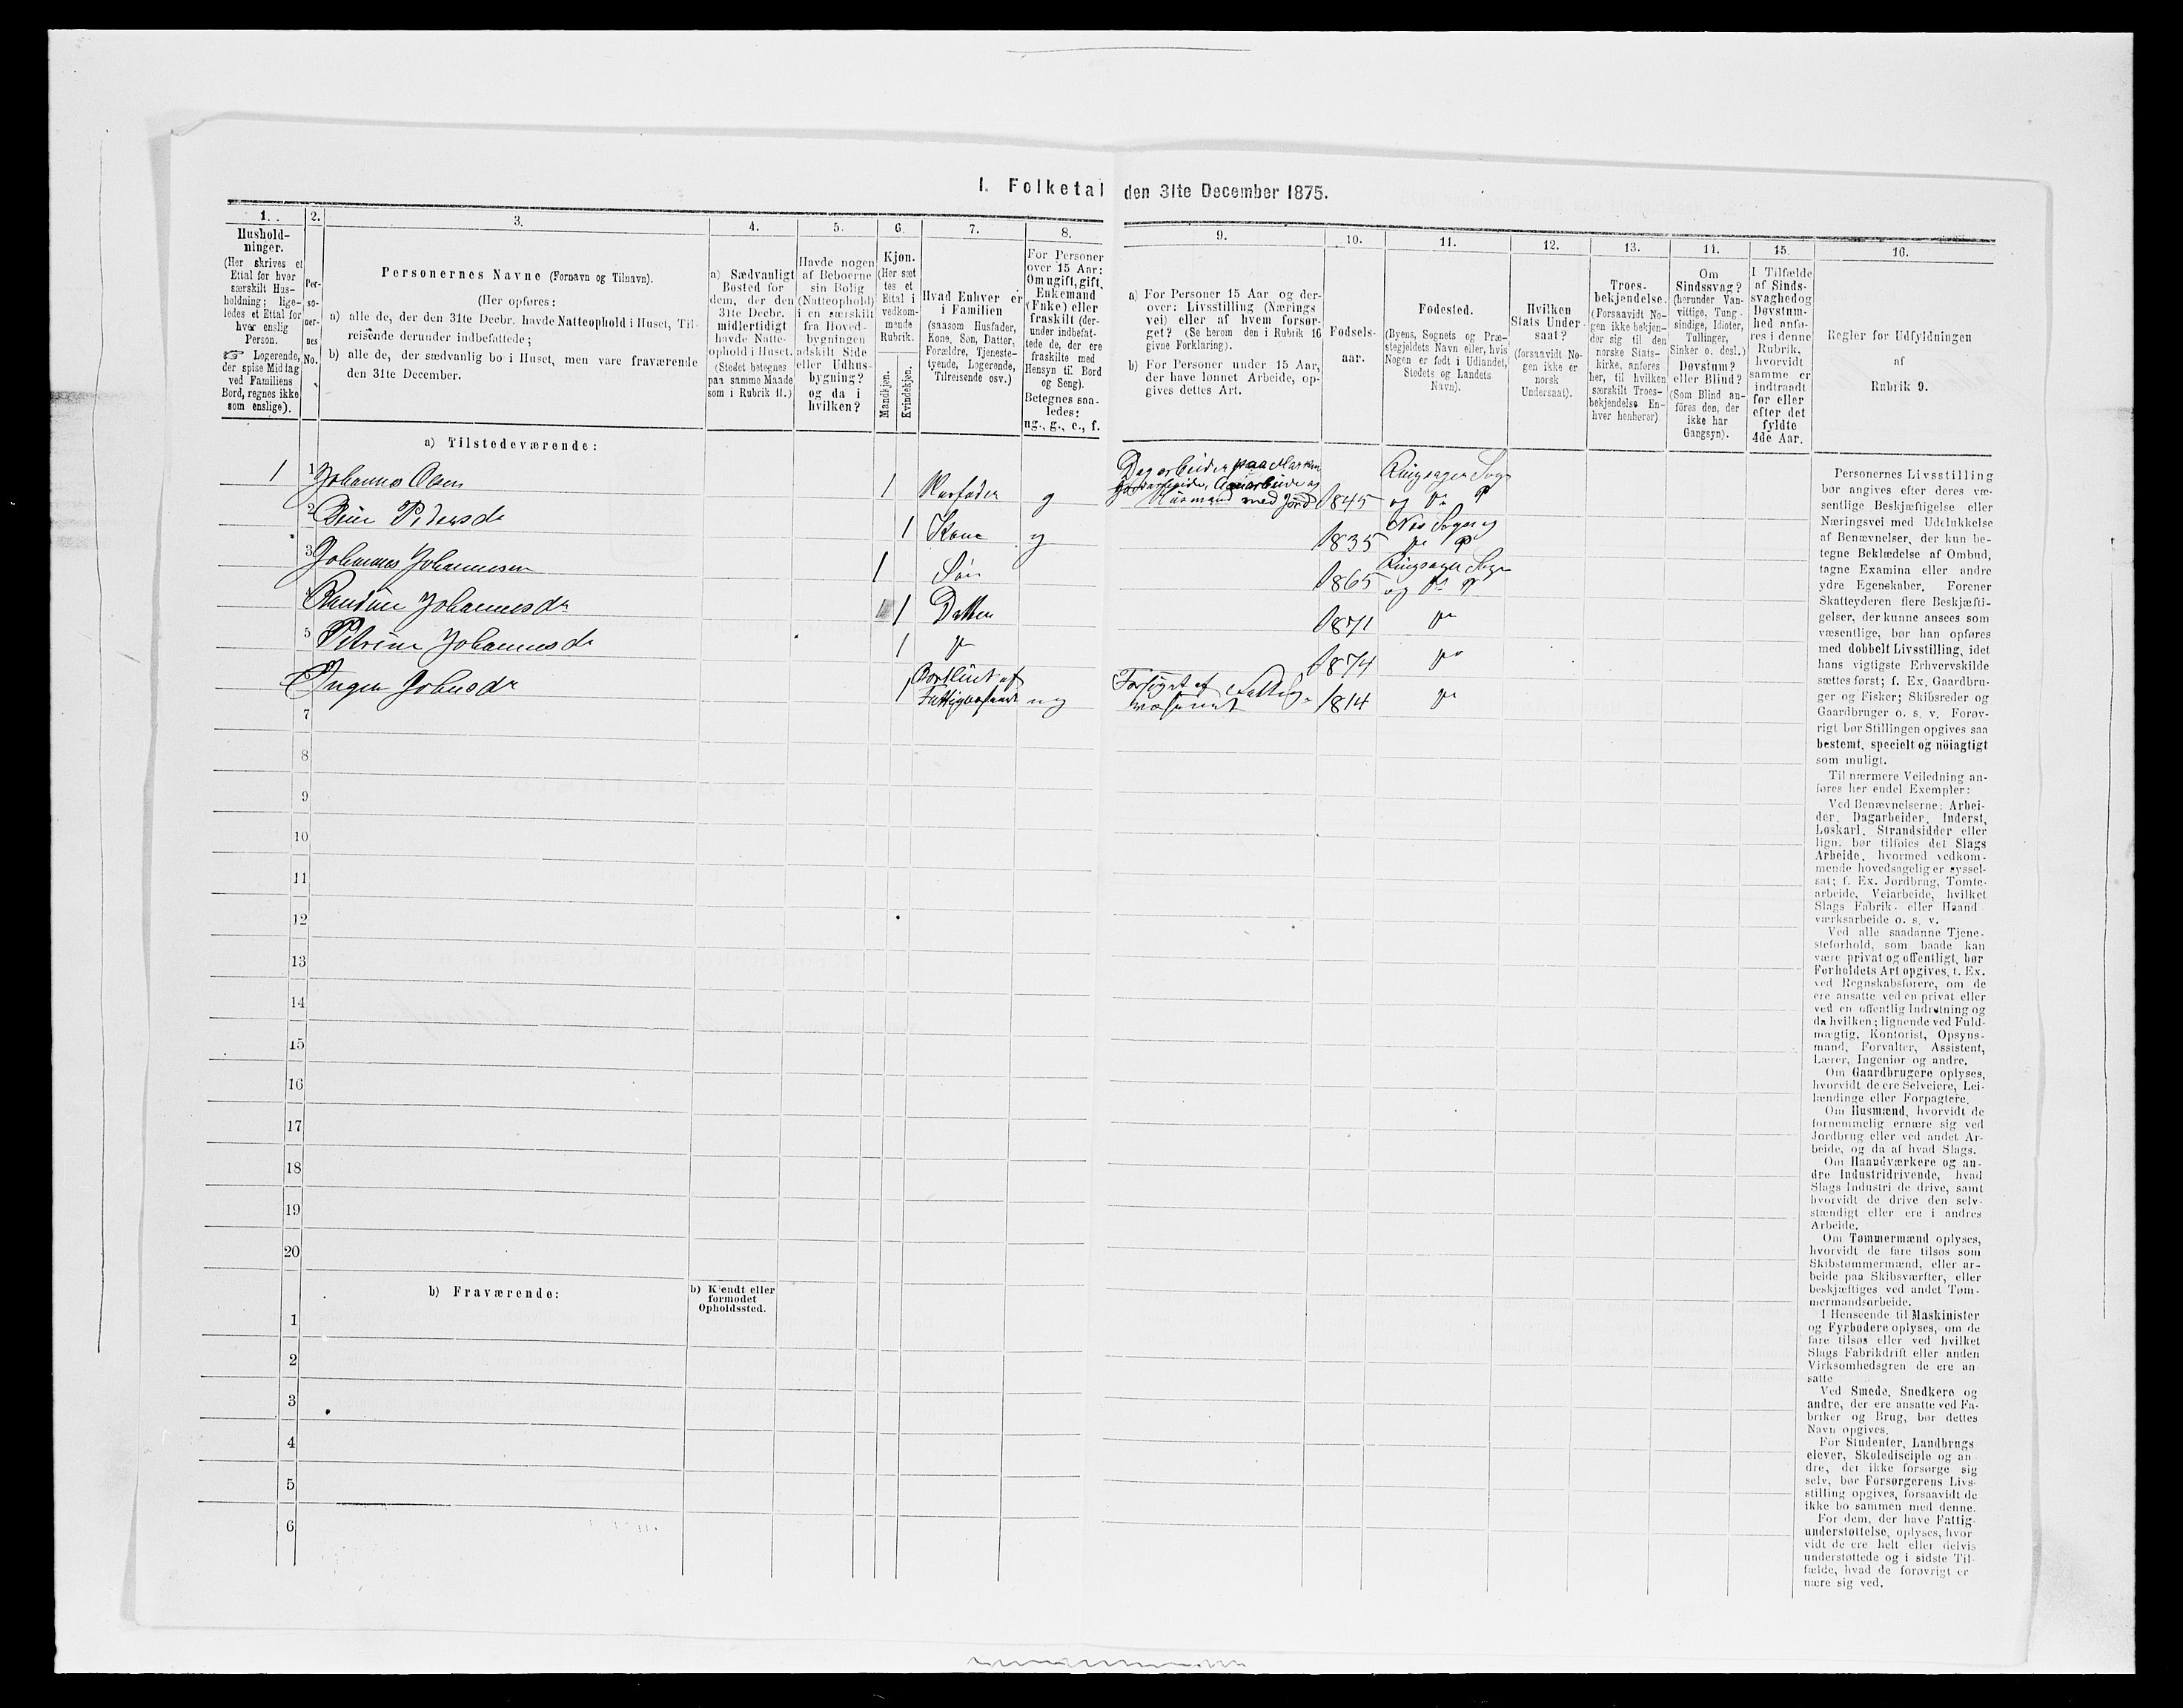 I. Folketal den 31te December 1875.
1. 2. 3. 4. 5. 6. 7. 8. 9. 10. 11. 12. 13. 14. 15. 16.
Hushold-
ninger.
(Her skrives et
Ettal for hver
særskilt Hus-
holdning; lige-
ledes et Ettal for
hver enslig
Person.
☞ Logerende,
der spise Middag
ved Familiens
Bord, regnes ikke
som enslige).
Per-
so-
ner-
nes
No.
Personernes Navne (Fornavn og Tilnavn).
(Her opføres:
a) alle de, der den 31te Decbr. havde Natteophold i Huset, Til-
reisende derunder indbefattede;
b) alle de, der sædvanlig bo i Huset, men vare fraværende
den 31te December.
a) Sædvanligt
Bosted for
dem, der den
31te Decbr.
midlertidigt
havde Natte-
ophold i Huset.
(Stedet betegnes
paa samme Maade
som i Rubrik 11.)
Havde nogen
af Beboerne
sin Bolig
(Natteophold)
i en særskilt
fra Hoved-
bygningen
adskilt Side
eller Udhus-
bygning?
og da i
hvilken?
Kjøn.
(Her sæt
tes et
Ettal i
vedkom-
mende
Rubrik.
Mandkjøn.
Kvindekjøn.
Hvad Enhver er
i Familien
(saasom Husfader,
Kone, Søn, Datter,
Forældre, Tjeneste-
tyende, Logerende,
Tilreisende osv.)
For Personer
over 15 Aar:
Om ugift, gift,
Enkemand
(Enke) eller
fraskilt (der-
under indbefat-
tede de, der ere
fraskilte med
Hensyn til Bord
og Seng).
Betegnes saa-
ledes:
ug., g., e., f.
a) For Personer 15 Aar og der-
over: Livsstilling (Nærings
vei) eller af hvem forsør-
get? (Se herom den i Rubrik 16
givne Forklaring).
b) For Personer under 15 Aar,
der have lønnet Arbeide, op-
gives dettes Art.
Fødsels-
aar.
Fødested.
(Byens, Sognets og Præ-
stegjeldets Navn eller, hvis
Nogen er født i Udlandet,
Stedets og Landets
Navn).
Hvilken
Stats Under-
saat?
(forsaavidt No-
gen ikke er
norsk
Undersaat).
Troes-
bekjendelse.
(Forsaavidt No-
gen ikke bekjen-
der sig til den
norske Stats-
kirke, anføres
her, til hvilken
særskilt Troes-
bekjendelse En-
hver henhører)
Om
Sindssvag?
(herunder Van-
vittige, Tung-
sindige, Idioter,
Tullinger,
Sinker o. desl.)
Døvstum?
eller Blind?
(Som Blind an-
føres den, der
ikke har
Gangsyn).
I Tilfælde
af Sinds-
svaghed og
Døvstum-
hed anfø-
res i denne
Rubrik,
hvorvidt
samme er
indtraadt
før eller
efter det
fyldte
4de Aar.
Regler for Udfyldningen
af
Rubrik 9.
a) Tilstedeværende:
1 1 Johannes Olsen 1 Husfader g Dagarbeider paa Marken
Aaarbeide og
Husmand med Jord 1845 Ringsager Sogn
og Do P
2 Pedersdr 1 Kone g 1835 Nes Sogn og
Do P
3 Johannes Johannesen 1 Søn 1865 Ringsager Sogn
og Do P
Johannesdr 1 Datter 1871 Do
5 Petrine Johannesdr 1 Do 1874 Do
Inger Johnsdr 1 Bortleiet af
Fattigvæsenet ug Forsørget af Fattig-
væsenet 1814 Do
7
8
9
10
11
12
13
14
15
16
17
18
19
20
b) Fraværende:
b) Kjendt eller
formodet
Opholdssted.
1
2
3
4
5
6
Personernes Livsstilling
bør angives efter deres væ-
sentlige Beskjæftigelse eller
Næringsvei med Udelukkelse
af Benævnelser, der kun be-
tegne Beklædelse af Ombud,
tagne Examina eller andre
ydre Egenskaber. Forener
Skatteyderen flere Beskjæfti-
gelser, der kunne ansees som
væsentlige, bør han opføres
med dobbelt Livsstilling, idet
hans vigtigste Erhvervskilde
sættes først; f. Ex. Gaardbru-
ger og Fisker; Skibsreder og
Gaardbruger o. s. v. Forøv-
rigt bør Stillingen opgives saa
bestemt, specielt og nöiagtigt
som muligt.
Til nærmere Veiledning an-
føres her endel Exempler:
Ved Benævnelserne: Arbei-
der, Dagarbeider, Inderst,
Løskarl, Strandsidder eller
lign. bør tilføies det Slags
Arbeide, hvormed vedkom-
mende hovedsagelig er syssel-
sat; f. Ex. Jordbrug, Tomte-
arbeide, Veiarbeide, hvilket
Slags Fabrik- eller Haand-
værksarbeide o. s. v.
Ved alle saadanne Tjene-
steforhold, som baade kan
være privat og offentligt, bør
Forholdets Art opgives, f. Ex.
ved Regnskabsførere, om de
ere ansatte ved en privat eller
ved en offentlig Indretning og
da hvilken; lignende ved Fuld-
mægtig, Kontorist, Opsyns-
mand, Forvalter, Assistent,
Lærer, Ingeniør og andre.
Om Gaardbrugere oplyses,
hvorvidt de ere Selveiere, Lei-
lændinge eller Forpagtere.
Om Husmænd, hvorvidt de
fornemmelig ernære sig ved
Jordbrug eller ved andet Ar-
beide, og da af hvad Slags.
Om Haandværkere og an-
dre Industridrivende, hvad
Slags Industri de drive, samt
hvorvidt de drive den selv-
stændigt eller ere i andres
Arbeide.
Om Tømmermænd oplyses,
hvorvidt de fare tilsøs som
Skibstømmermænd, eller ar-
beide paa Skibsværfter, eller
beskjæftiges ved andet Tøm-
mermandsarbeide.
I Henseende til Maskinister
og Fyrbødere oplyses, om de
fare tilsøs eller ved hvilket
Slags Fabrikdrift eller anden
Virksomhedsgren de ere an-
satte
Ved Smede, Snedkere og
andre, der ere ansatte ved Fa-
briker og Brug, bør dettes
Navn opgives.
For Studenter, Landbrugs
elever, Skoledisciple og an
dre, der ikke forsørge sig
selv, bør Forsørgerens Livs-
stilling opgives, forsaavidt de
ikke bo sammen med denne.
For dem, der have Fattig-
understøttelse, oplyses, hvor
vidt de ere helt eller delvis
understøttede og i sidste Til-
fælde, hvad de forøvrigt er
nære sig ved.